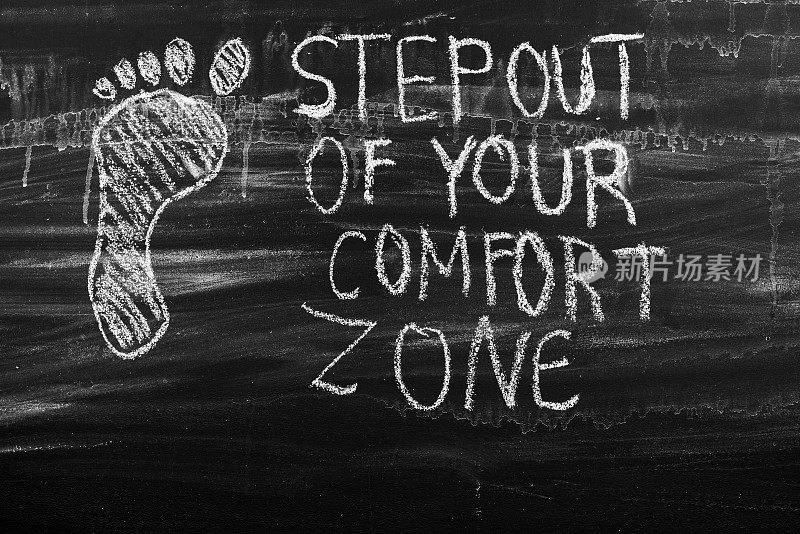 STEP OUT
OF YOUR
COMFORT
ZONE
new 新片素材